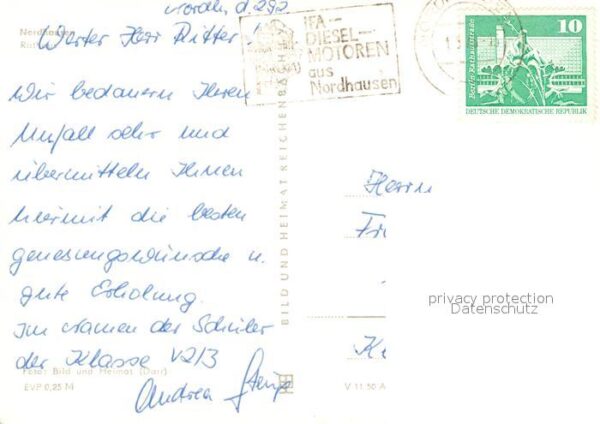 Nordh. d. 292
Nordhausen
Werter Herr Ritter!
Wir bedauern Ihren
Unfall sehr und
übermitteln Ihnen
hiermit die besten
genesungswünsche u.
gute Erholung.
Im Namen der Schüler
der Klasse V2/3
Andrea
Foto: Bild und Heimat (Darr)
EVP 0,25 M
BILD UND HEIMAT REICHENBACH
V 11 50 A
IFA-
DIESEL-
MOTOREN
aus
Nordhausen
10
Berlin, Rathausstraße
DEUTSCHE DEMOKRATISCHE REPUBLIK
Herrn
Fri
privacy protection
Datenschutz